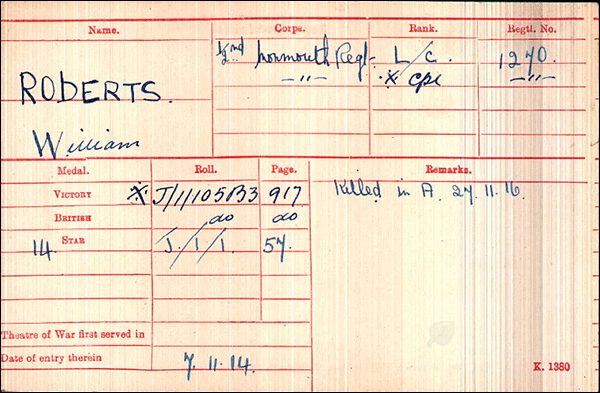 Name. Corps. Rank. Regtl. No.
ROBERTS. 2nd Monmouth Regt- L/C. 1270.
William —"— X Cpl —"—
Medal. Roll. Page. Remarks.
VICTORY X J/1/105B3 917 Killed in A. 27.11.16.
BRITISH do do
14 STAR J/1/1 57.
Theatre of War first served in
Date of entry therein 7.11.14.
K. 1380